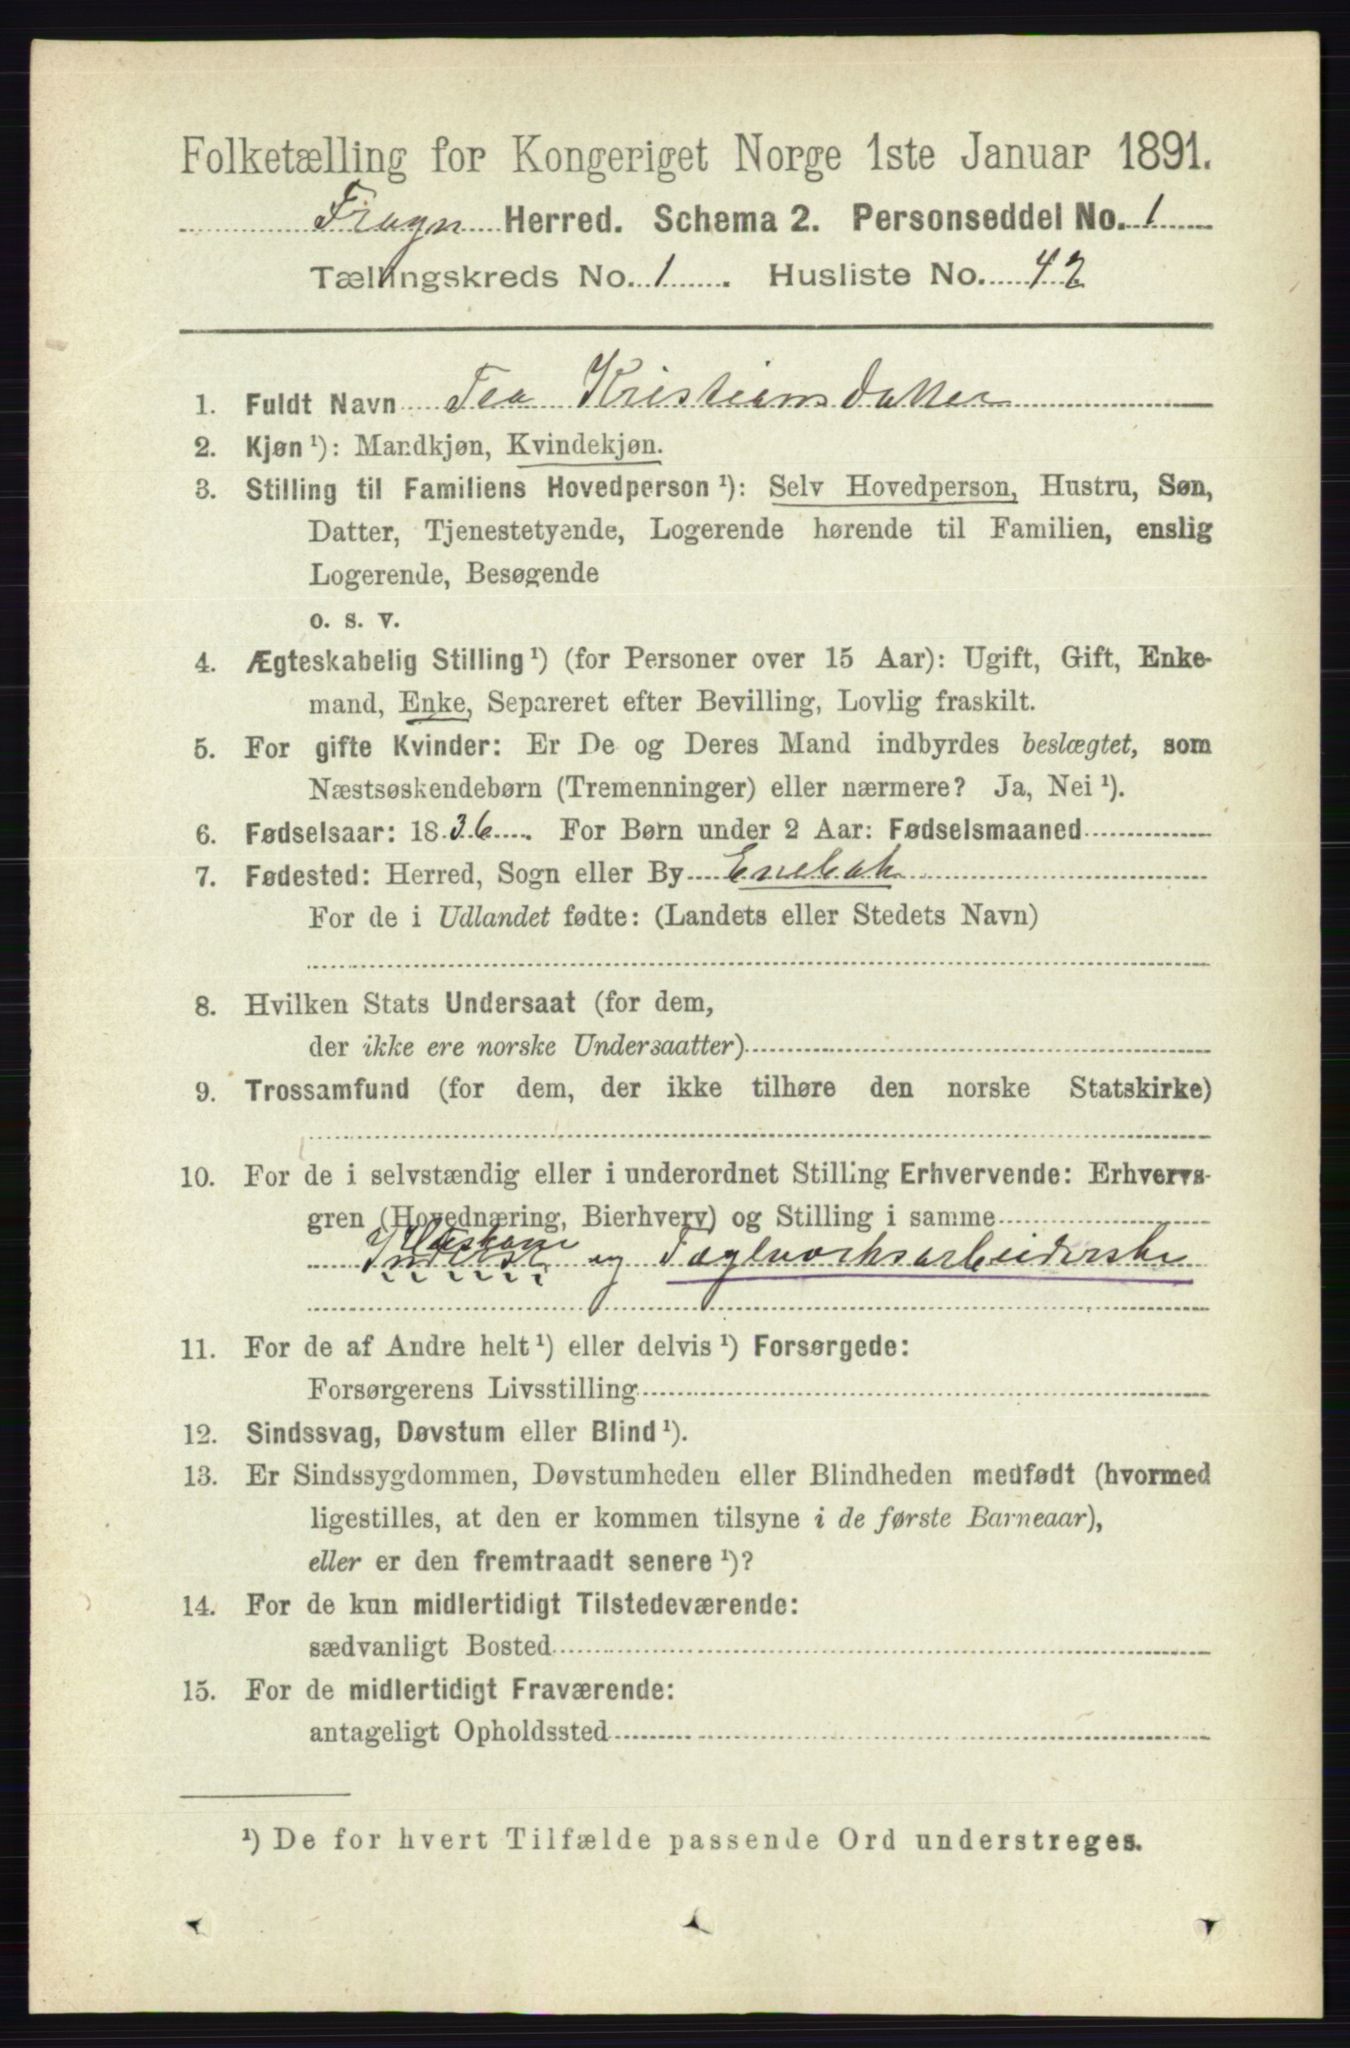 Folketælling for Kongeriget Norge 1ste Januar 1891.
Frogn Herred. Schema 2. Personseddel No. 1
Tællingskreds No. 1. Husliste No. 42
1. Fuldt Navn Tea Kristiansdatter
2. Kjøn ¹): Mandkjøn, Kvindekjøn.
3. Stilling til Familiens Hovedperson ¹): Selv Hovedperson, Hustru, Søn,
Datter, Tjenestetyende, Logerende hørende til Familien, enslig
Logerende, Besøgende
o. s. v.
4. Ægteskabelig Stilling ¹) (for Personer over 15 Aar): Ugift, Gift, Enke-
mand, Enke, Separeret efter Bevilling, Lovlig fraskilt.
5. For gifte Kvinder: Er De og Deres Mand indbyrdes beslægtet, som
Næstsøskendebørn (Tremenninger) eller nærmere? Ja, Nei ¹).
6. Fødselsaar: 1836. For Børn under 2 Aar: Fødselsmaaned
7. Fødested: Herred, Sogn eller By Enebak
For de i Udlandet fødte: (Landets eller Stedets Navn)
8. Hvilken Stats Undersaat (for dem,
der ikke ere norske Undersaatter)
9. Trossamfund (for dem, der ikke tilhøre den norske Statskirke)
10. For de i selvstændig eller i underordnet Stilling Erhvervende: Erhvervs-
gren (Hovednæring, Bierhverv) og Stilling i samme
og Teglværksarbeiderske
11. For de af Andre helt ¹) eller delvis ¹) Forsørgede:
Forsørgerens Livsstilling
12. Sindssvag, Døvstum eller Blind ¹).
13. Er Sindssygdommen, Døvstumheden eller Blindheden medfødt (hvormed
ligestilles, at den er kommen tilsyne i de første Barneaar),
eller er den fremtraadt senere ¹)?
14. For de kun midlertidigt Tilstedeværende:
sædvanligt Bosted
15. For de midlertidigt Fraværende:
antageligt Opholdssted
¹) De for hvert Tilfælde passende Ord understreges.